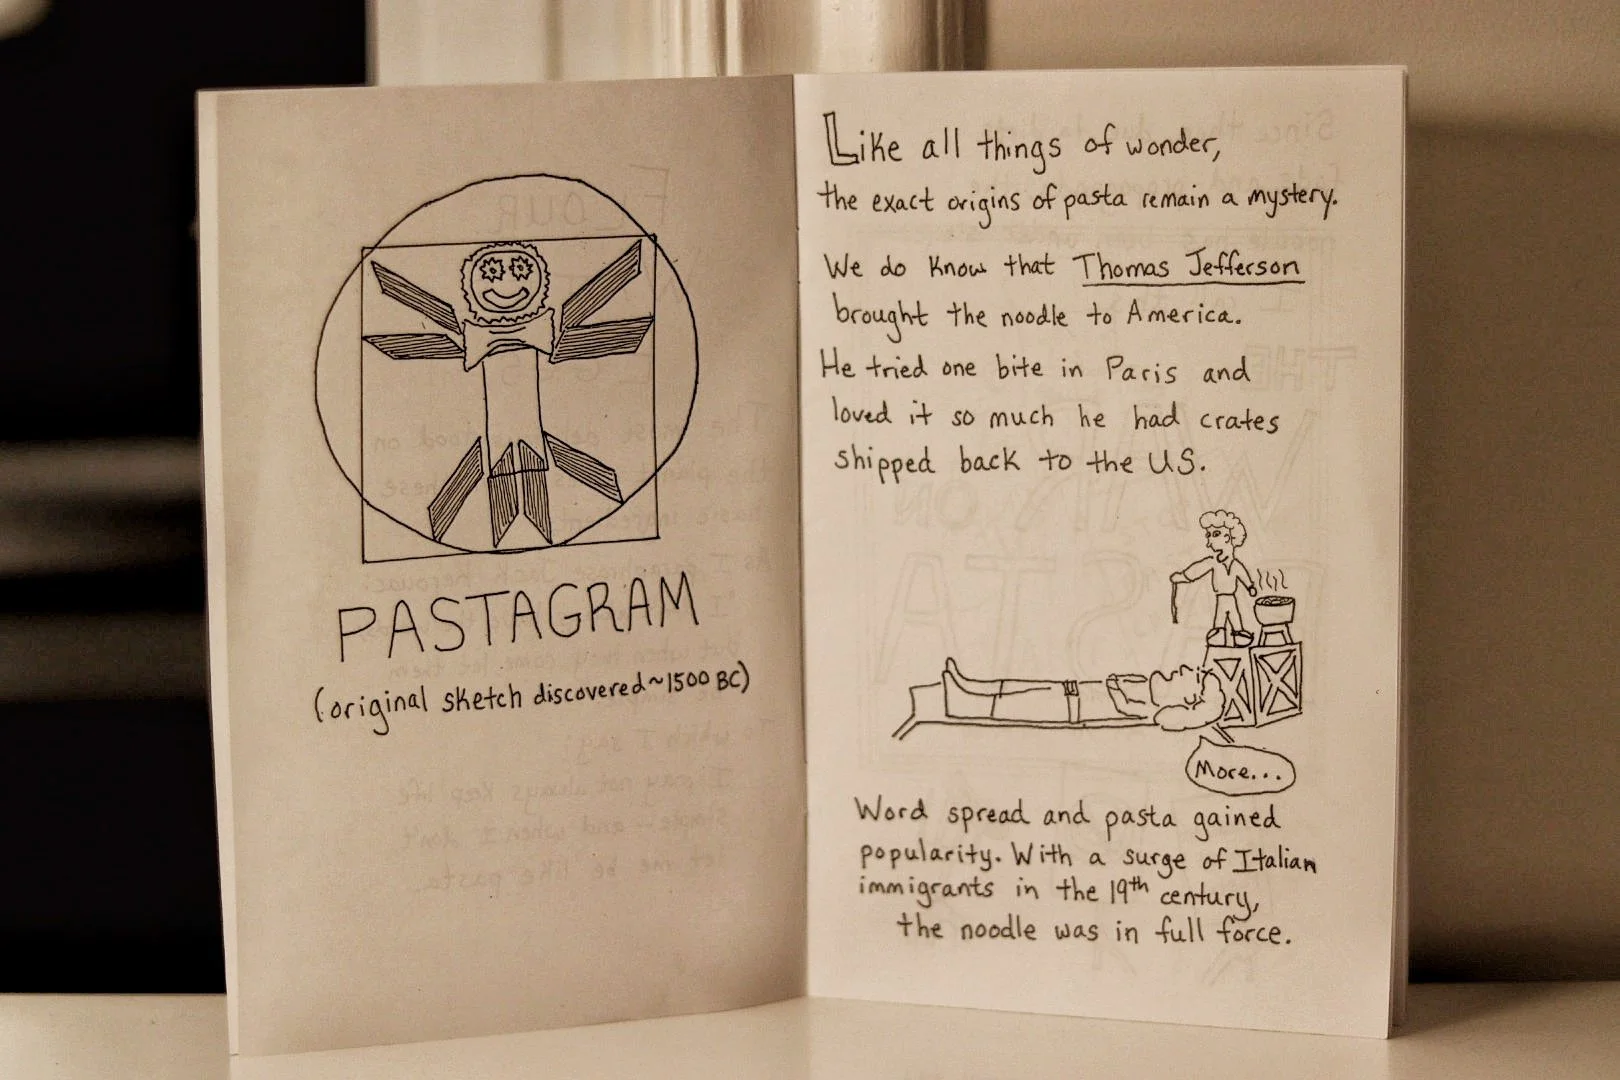 PASTAGRAM
(original sketch discovered ~1500 BC)
Like all things of wonder,
the exact origins of pasta remain a mystery.
We do know that Thomas Jefferson
brought the noodle to America.
He tried one bite in Paris and
loved it so much he had crates
shipped back to the US.
More...
Word spread and pasta gained
popularity. With a surge of Italian
immigrants in the 19th century,
the noodle was in full force.